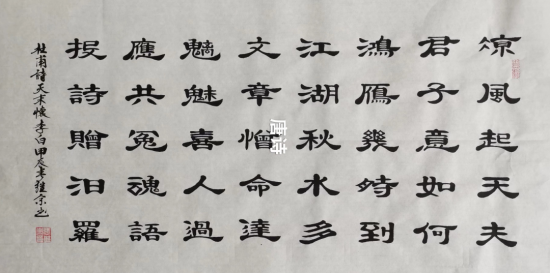 凉風起天夫
君子意如何
鴻鴈幾時到
江湖秋水多
文章憎命達
魑魅喜人過
應共冤魂語
投詩贈汨羅
杜甫詩天末懷李白甲辰
唐诗